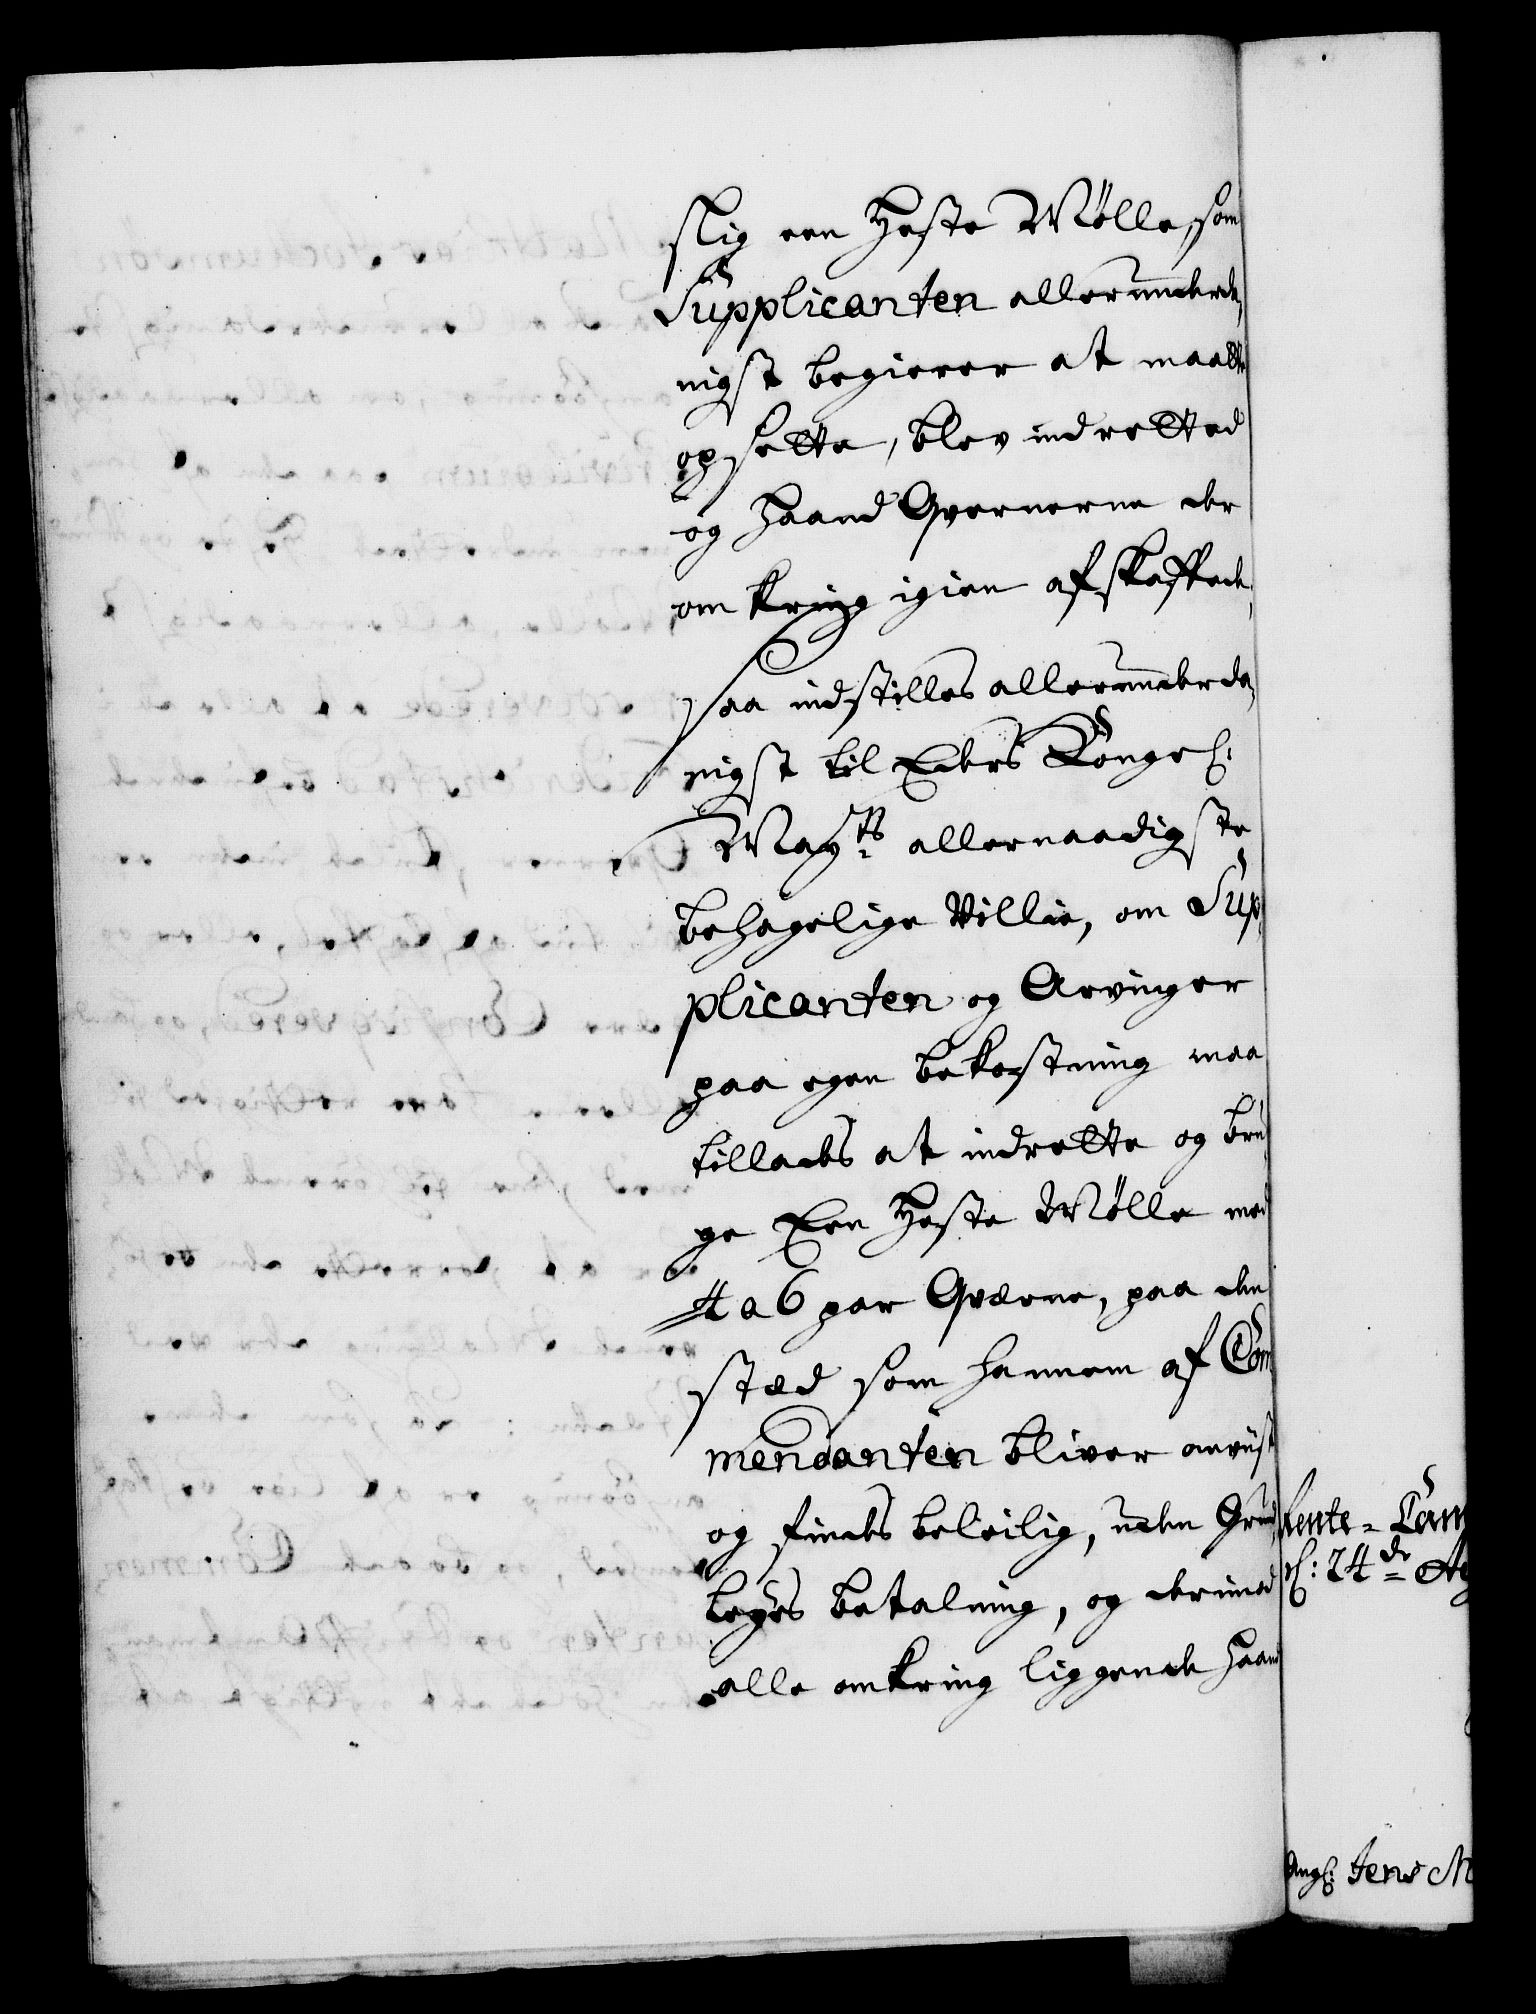 slig een Heste Mølle, som
Supplicanten allerunderda,
nigst begierer at maatte
opsette, blev indretted
og Haand Qvernerne der
omkring igien afskaffede,
saa indstilles allerunderda,
nigst til Eders Kongel:
Mayts allernaadigste
behagelige Villie, om Sup,
plicanten og Arvinger
paa egen bekostning maa
tillades at indrette og bru,
ge Een Heste Mølle med
4 a 6 par Qværne, paa den
stæd som hannem af Com
mendanten bliver anviist
og findes beleilig, uden Grund
leyes betalning, og derimod
alle omkring liggende Haand
Rente-Cam
d: 24de
Jens M